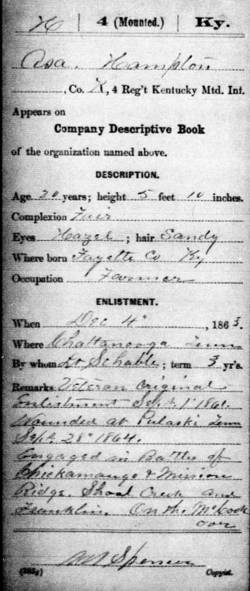 H | 4 (Mounted.) | Ky.
Asa. Hampton
, Co. H, 4 Reg't Kentucky Mtd. Inf.
Appears on
Company Descriptive Book
of the organization named above.
DESCRIPTION.
Age 20 years; height 5 feet 10 inches.
Complexion Fair
Eyes Hazel ; hair Sandy
Where born Fayette Co Ky
Occupation Farmer
ENLISTMENT.
When Dec 4", 1863.
Where Chattanooga Tenn
By whom Lt Schable; term 3 y'rs.
Remarks Veteran Original
Enlistment Sept 1" 1861.
Wounded at Pulaski Tenn
Sept 28" 1864.
Engaged in Battle of
Chickamauga & Mission
Ridge. Shoal Creek and
Franklin. On the McCook
over
Spencer
Copyist.